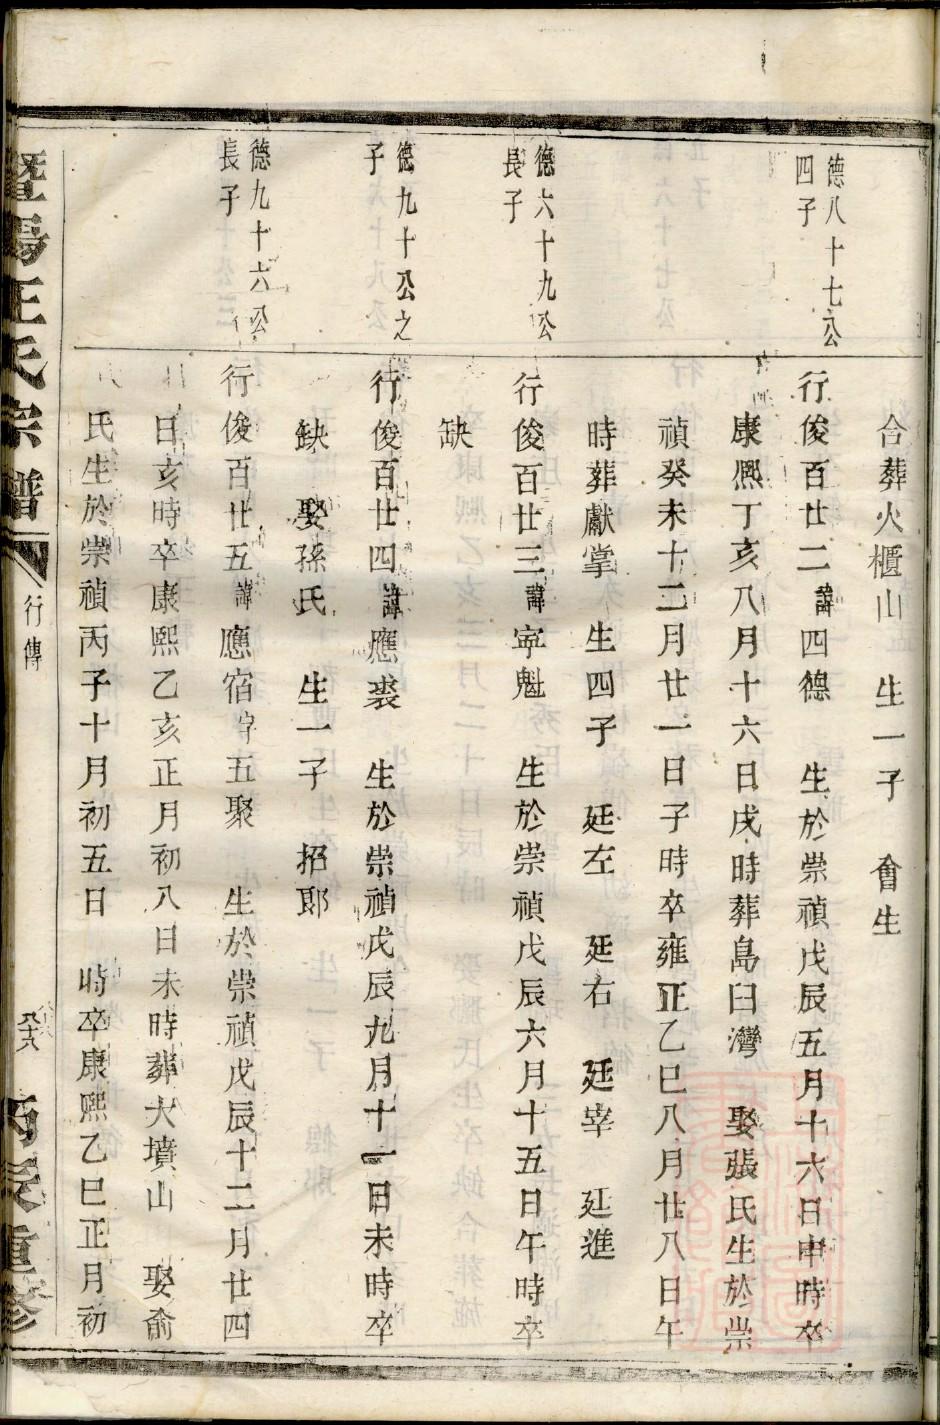 合葬火櫃山　生一子　會生
德八十七公
四子
行俊百廿二諱四德　生於崇禎戊辰五月十六日申時卒
康熙丁亥八月十六日戌時葬島臼灣　娶張氏生於崇
禎癸未十二月廿一日子時卒雍正乙巳八月廿八日午
時葬獻掌　生四子　廷左　廷右　廷宰　廷進
德六十九公
長子
行俊百廿三諱寜魁　生於崇禎戊辰六月十五日午時卒
缺
德九十公之
子
行俊百廿四諱應裘　生於崇禎戊辰九月十一日未時卒
缺　娶孫氏　生一子　招郎
德九十六公
長子
行俊百廿五諱應宿字五聚　生於崇禎戊辰十二月廿四
日亥時卒康熙乙亥正月初八日未時葬大墳山　娶俞
氏生於崇禎丙子十月初五日　時卒康熙乙巳正月初
暨陽王氏宗譜
行傳
丙辰重修